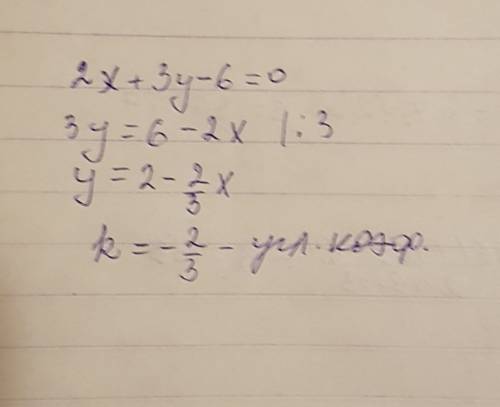 2x + 3y - 6 = 0
3y = 6 - 2x | : 3
y = 2 - 2/3 x
k = - 2/3 - угл. коэф.